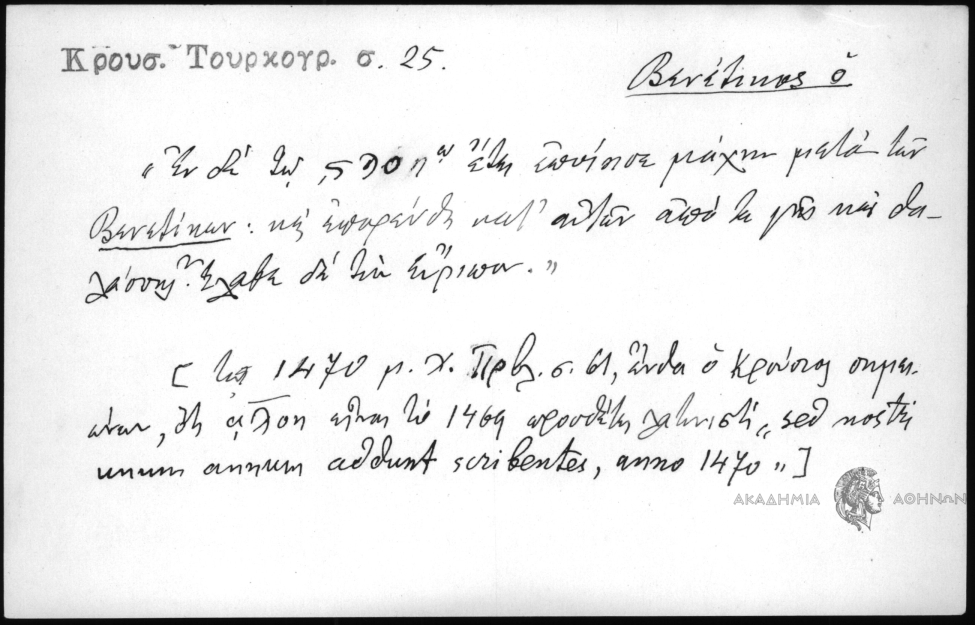 Κρουσ. Τουρκογρ. σ. 25.
Βενέτικος ὁ
"Ἐν δὲ τῷ ͵ϛϡοηῳ ἔτει ἐποίησε μάχην μετὰ τῶν
Βενετίκων: καὶ ἐπορεύθη κατ' αὐτῶν ἀπό τε γῆς καὶ θα-
λάσσης. Ἔλαβε δὲ τὴν Εὔριπον."
[τῷ 1470 μ. Χ. Πρβλ. σ. 61, ἔνθα ὁ Κρούσιος σημει-
ὅτι εἶναι τὸ 1469 προσθέτει λατινιστὶ "sed nostri
unum annum addunt scribentes, anno 1470"]
ΑΚΑΔΗΜΙΑ ΑΘΗΝΩΝ